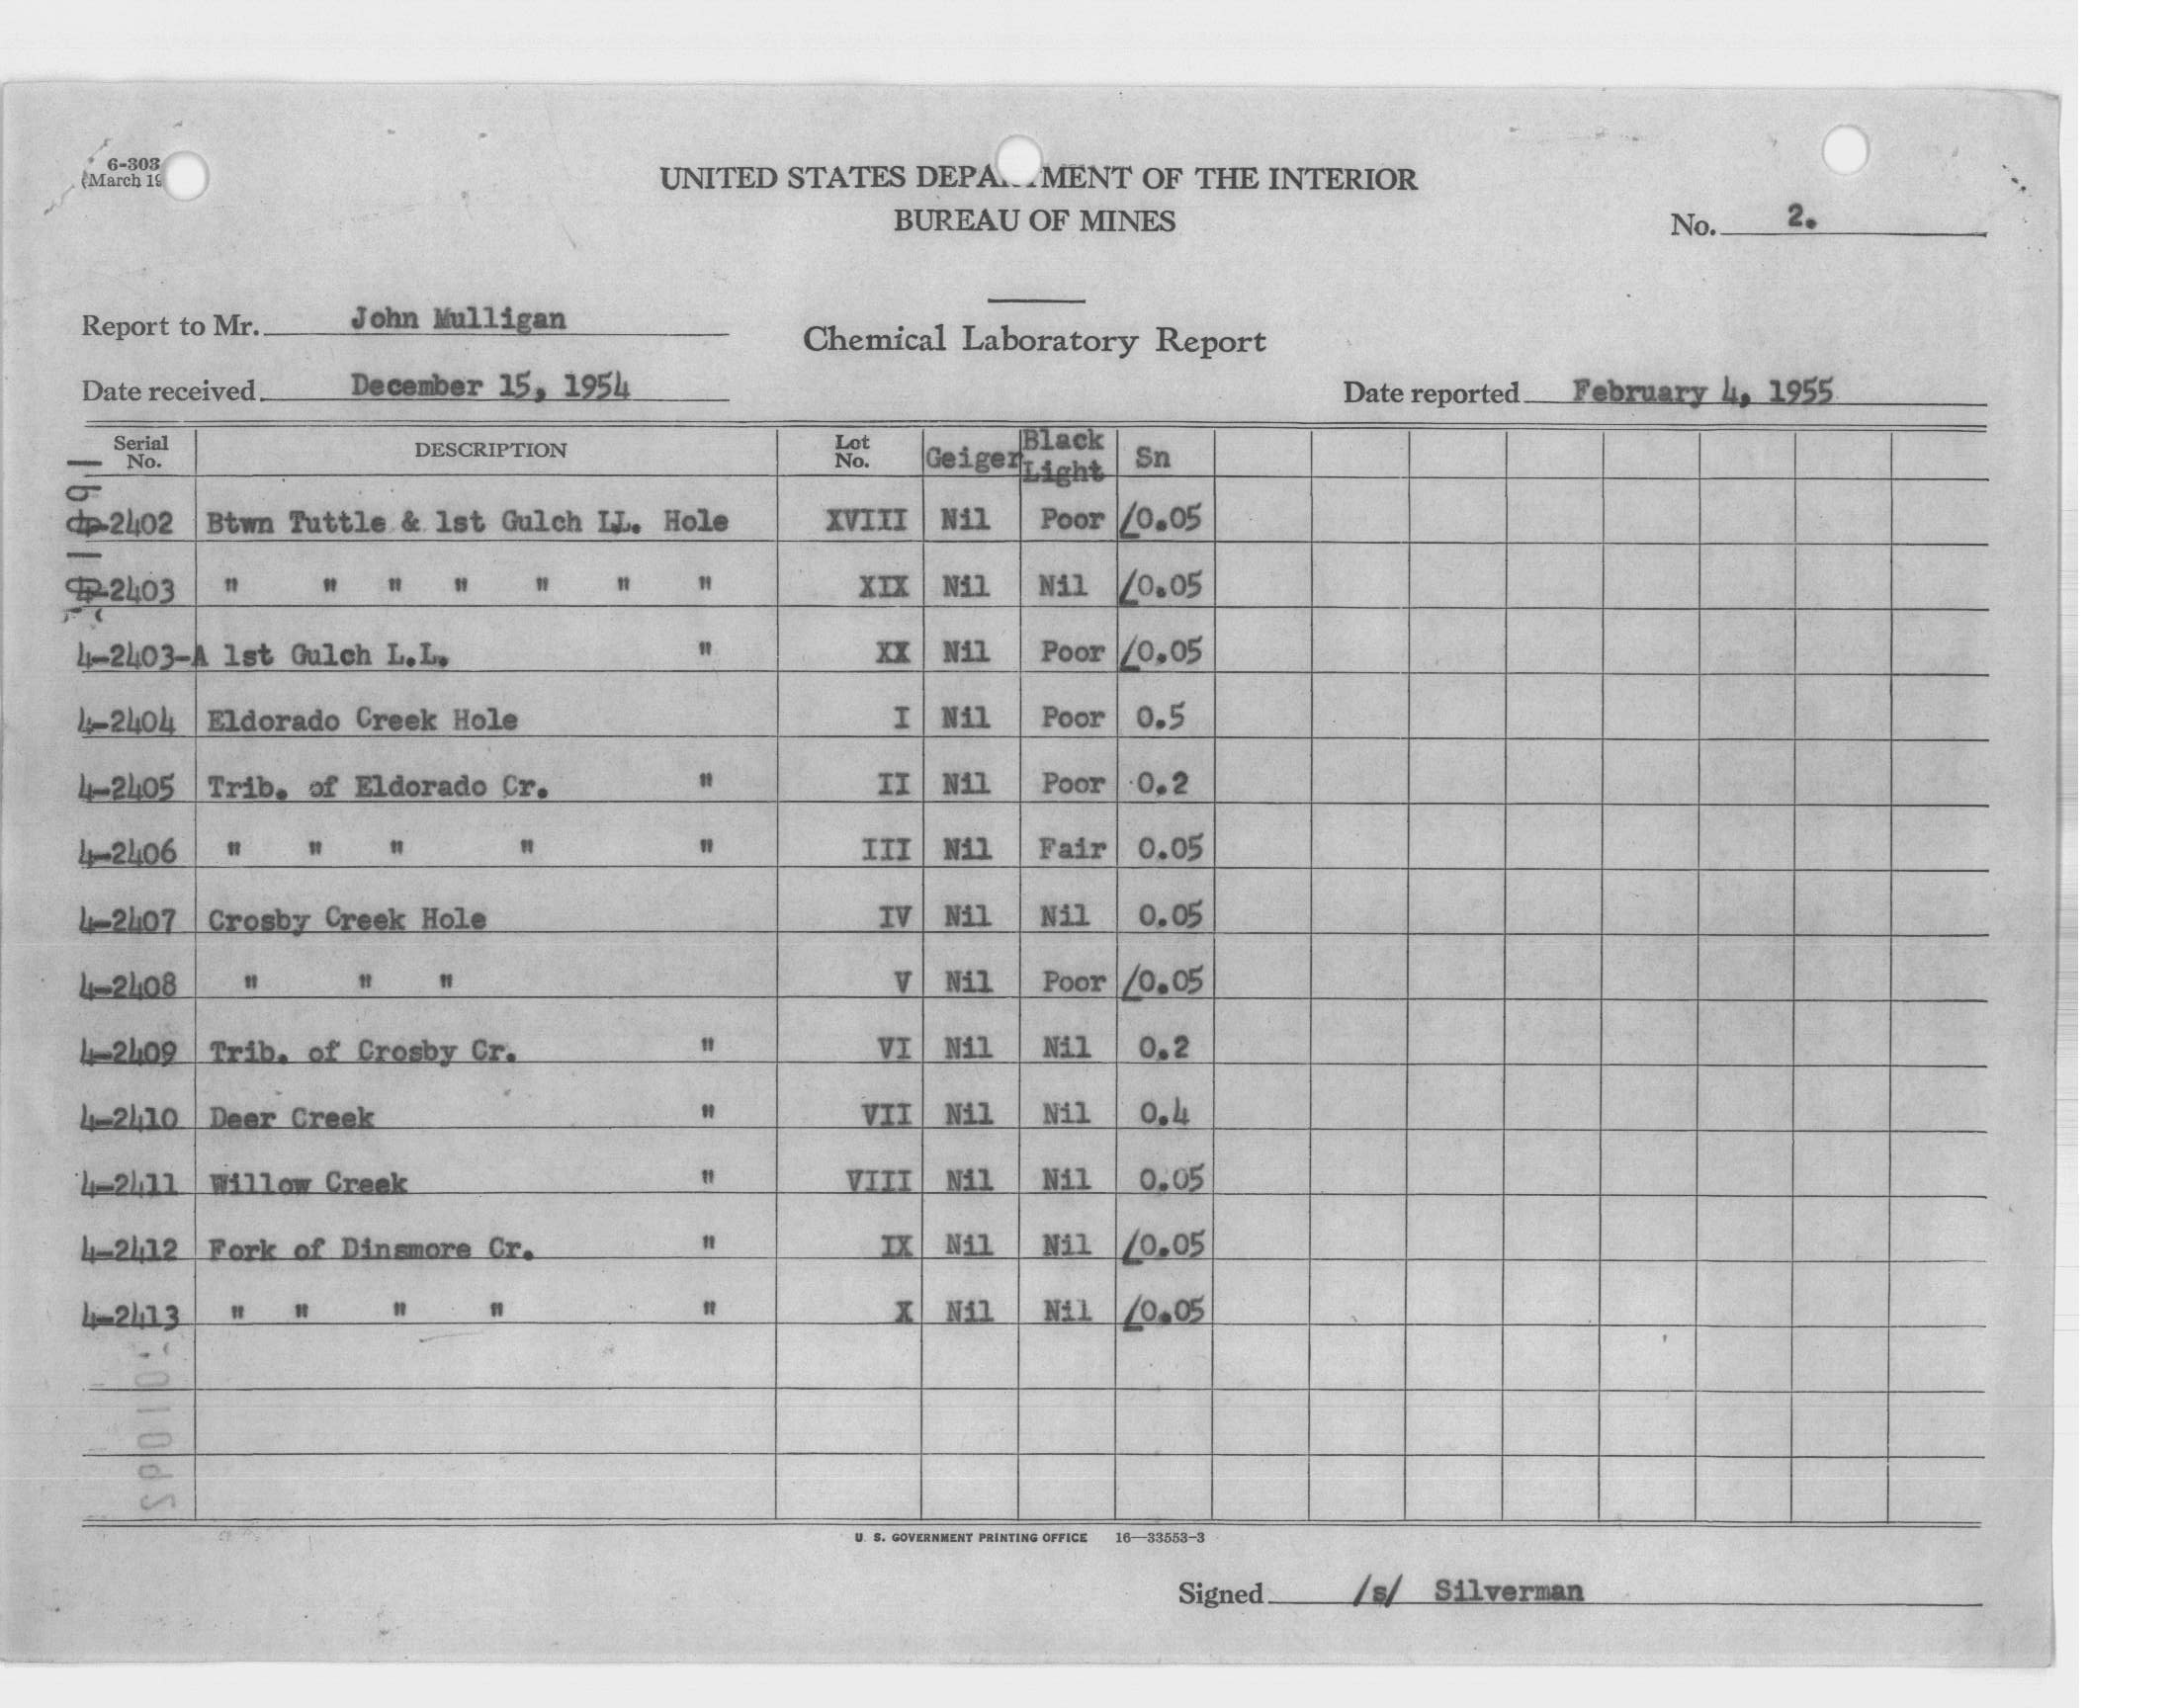 6-303
(March 19
UNITED STATES DEPA MENT OF THE INTERIOR
BUREAU OF MINES
No. 2.
Report to Mr. John Mulligan
Chemical Laboratory Report
Date received December 15, 1954
Date reported February 4, 1955
Serial No. DESCRIPTION Lot No. Geiger Black Light Sn
4-2402 Btwn Tuttle & 1st Gulch LL. Hole XVIII Nil Poor /0.05
4-2403 " " " " " " " XIX Nil Nil /0.05
4-2403-A 1st Gulch L.L. " XX Nil Poor /0.05
4-2404 Eldorado Creek Hole I Nil Poor 0.5
4-2405 Trib. of Eldorado Cr. " II Nil Poor 0.2
4-2406 " " " " " III Nil Fair 0.05
4-2407 Crosby Creek Hole IV Nil Nil 0.05
4-2408 " " " V Nil Poor /0.05
4-2409 Trib. of Crosby Cr. " VI Nil Nil 0.2
4-2410 Deer Creek " VII Nil Nil 0.4
4-2411 Willow Creek " VIII Nil Nil 0.05
4-2412 Fork of Dinsmore Cr. " IX Nil Nil /0.05
4-2413 " " " " " X Nil Nil /0.05
U. S. GOVERNMENT PRINTING OFFICE 16—33553-3
Signed /s/ Silverman